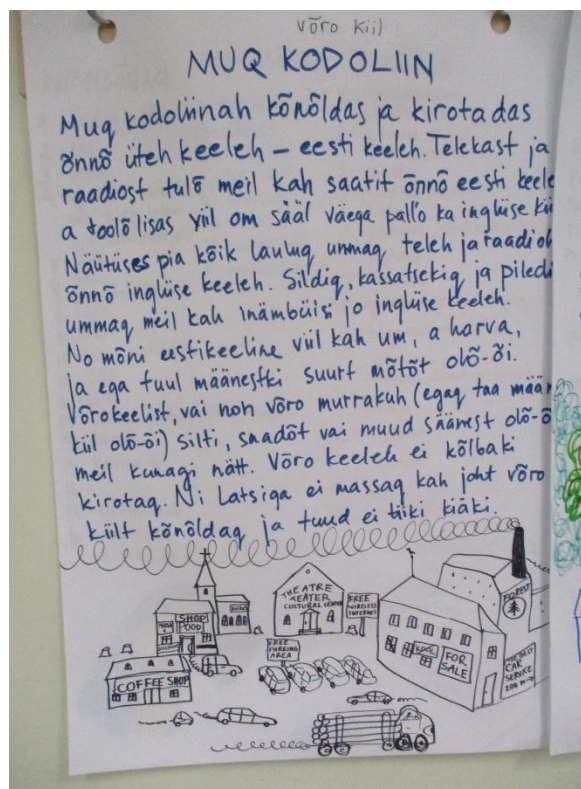 võro kiil
MUQ KODOLIIN
Muq kodoliinah kõnõldas ja kirotadas
õnnõ üteh keeleh – eesti keeleh. Telekast ja
raadiost tulõ meil kah saatit õnnõ eesti keele
a toolõ lisas viil om sääl väega pall'o ka inglüse kii
Näütüses pia kõik lauluq ummaq teleh ja raadioh
õnnõ inglüse keeleh. Sildiq, kassatsekiq ja piledi
ummaq meil kah inämbüisi jo inglüse keeleh.
No mõni eestikeeline viil kah um, a harva,
ja ega tuul määnestki suurt mõtõt olõ-õi.
Võrokeelist, vai noh võro murrakuh (egaq taa mään
kiil olõ-õi) silti, snadõt vai muud säänest olõ-õ
meil kunagi nätt. Võro keeleh ei kõlbaki
kirotaq. Ni latsiga ei massaq kah joht võro
kiilt kõnõldaq ja tuud ei tiiki kiäki.
THEATRE
TEATER
CULTURAL CENTER
FREE
WIRELESS
INTERNET
SHOP
FOOD
FREE
PARKING
AREA
COFFEE SHOP
KOOL
FOR
SALE
FOREST
CAR
SERVICE